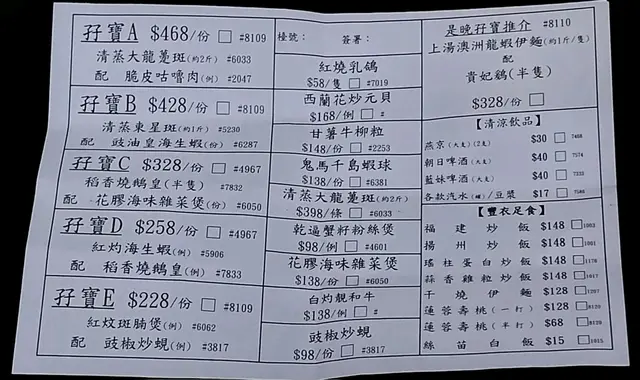 孖寶A $468/份 □ #8109
清蒸大龍躉斑(約2斤) #6033
配 脆皮咕嚕肉(例) #2047
孖寶B $428/份 □ #8109
清蒸東星斑(約1斤) #5230
配 豉油皇海生蝦(份) #6287
孖寶C $328/份 □ #4967
稻香燒鵝皇(半隻) #7832
配 花膠海味雜菜煲(份) #6050
孖寶D $258/份 □ #4967
紅灼海生蝦(例) #5906
配 稻香燒鵝皇(例) #7833
孖寶E $228/份 □ #8109
紅炆斑腩煲(例) #6062
配 豉椒炒蜆(例) #3817
檯號: 簽署:
紅燒乳鴿
$58/隻 □ #7019
西蘭花炒元貝
$168/例 □ #
甘薯牛柳粒
$148/份 □ #2253
鬼馬千島蝦球
$138/份 □ #6381
清蒸大龍躉斑(約2斤)
$398/條 □ #6033
乾逼蟹籽粉絲煲
$98/例 □ #4601
花膠海味雜菜煲
$138/份 □ #6050
白灼靚和牛
$138/例 □ #
豉椒炒蜆
$98/份 □ #3817
是晚孖寶推介 #8110
上湯澳洲龍蝦伊麵(約1斤/隻)
配
貴妃鷄(半隻)
$328/份 □
【清涼飲品】
燕京(大支)(2支) $30 □
朝日啤酒(大支) $40 □
藍妹啤酒(大支) $40 □
各款汽水(罐)/豆漿 $17 □
【豐衣足食】
福建炒飯 $148 □
揚州炒飯 $148 □
瑤柱蛋白炒飯 $148 □
蒜香雞粒炒飯 $148 □
干燒伊麵 $128 □
蓮蓉壽桃(一打) $128 □
蓮蓉壽桃(半打) $68 □
絲苗白飯 $15 □